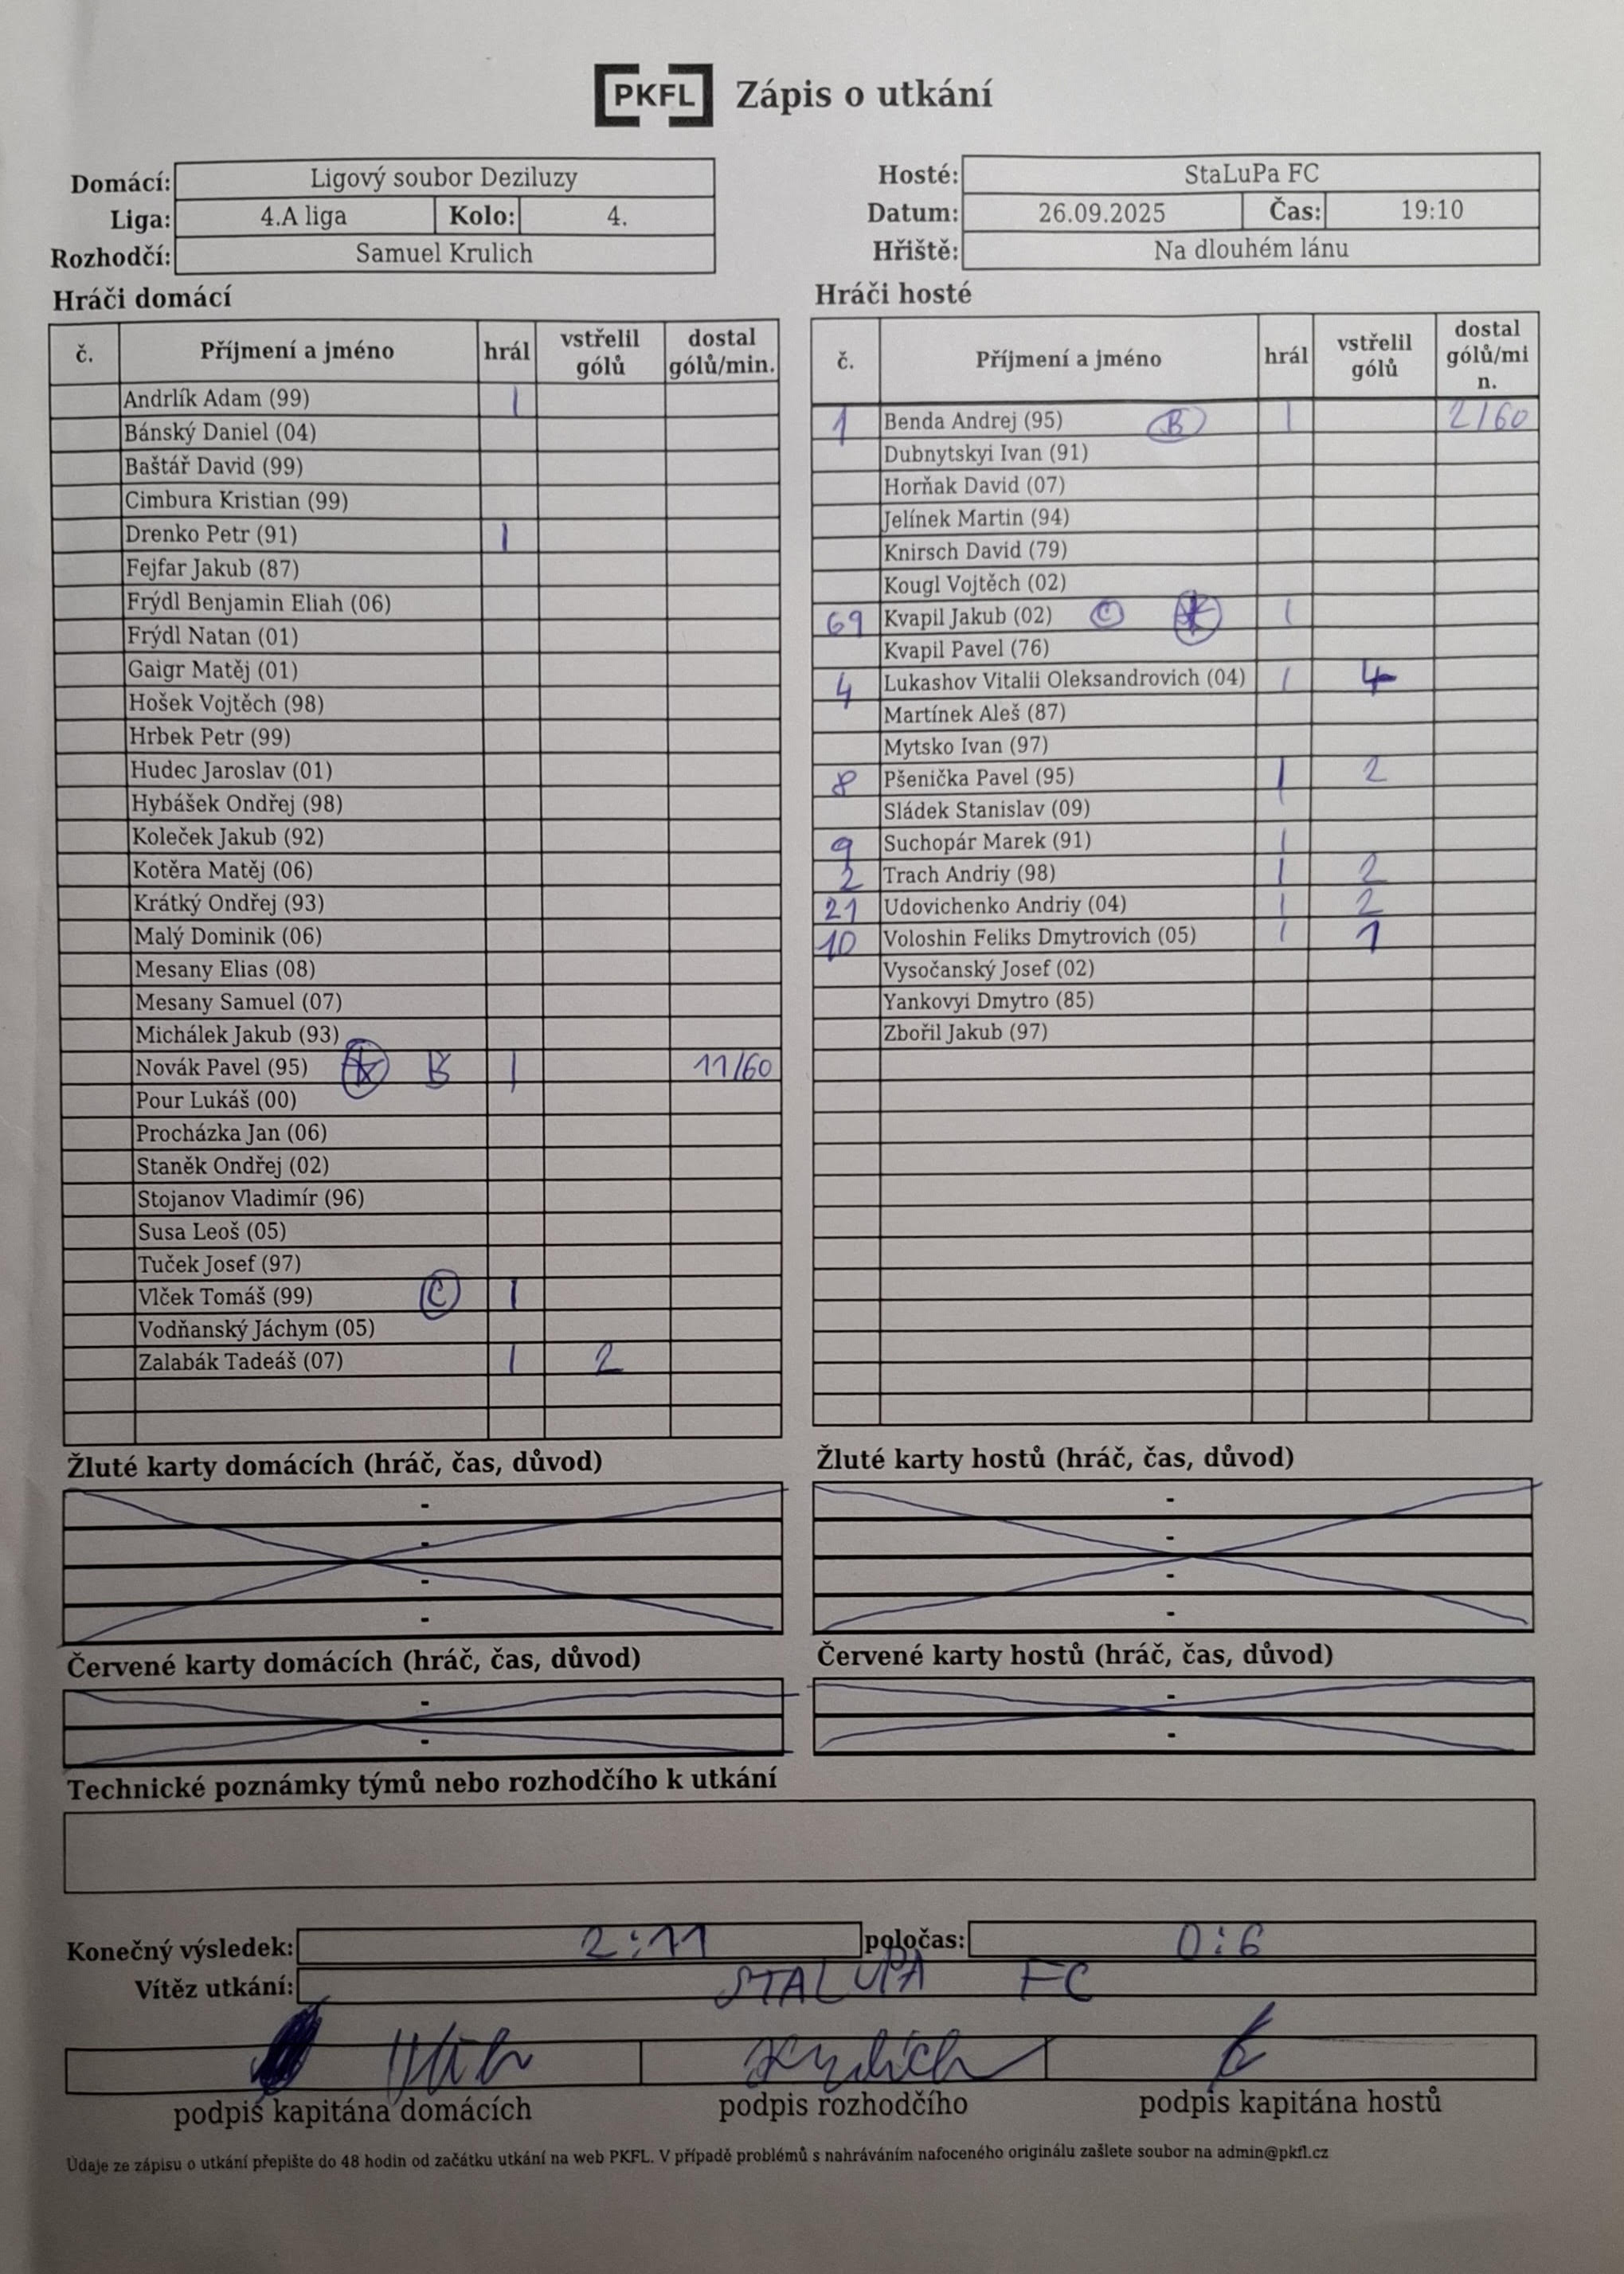 PKFL Zápis o utkání
Domácí: Ligový soubor Deziluzy
Liga: 4.A liga Kolo: 4.
Rozhodčí: Samuel Krulich
Hosté: StaLuPa FC
Datum: 26.09.2025 Čas: 19:10
Hřiště: Na dlouhém lánu
Hráči domácí
č. Příjmení a jméno hrál vstřelil gólů dostal gólů/min.
Andrlík Adam (99) 1
Bánský Daniel (04)
Baštář David (99)
Cimbura Kristian (99)
Drenko Petr (91) 1
Fejfar Jakub (87)
Frýdl Benjamin Eliah (06)
Frýdl Natan (01)
Gaigr Matěj (01)
Hošek Vojtěch (98)
Hrbek Petr (99)
Hudec Jaroslav (01)
Hybášek Ondřej (98)
Koleček Jakub (92)
Kotěra Matěj (06)
Krátký Ondřej (93)
Malý Dominik (06)
Mesany Elias (08)
Mesany Samuel (07)
Michálek Jakub (93)
Novák Pavel (95) B 1 11/60
Pour Lukáš (00)
Procházka Jan (06)
Staněk Ondřej (02)
Stojanov Vladimír (96)
Susa Leoš (05)
Tuček Josef (97)
Vlček Tomáš (99) C 1
Vodňanský Jáchym (05)
Zalabák Tadeáš (07) 1 2
Hráči hosté
č. Příjmení a jméno hrál vstřelil gólů dostal gólů/mi n.
1 Benda Andrej (95) B 1 2/60
Dubnytskyi Ivan (91)
Horňak David (07)
Jelínek Martin (94)
Knirsch David (79)
Kougl Vojtěch (02)
69 Kvapil Jakub (02) C 1
Kvapil Pavel (76)
4 Lukashov Vitalii Oleksandrovich (04) 1 4
Martínek Aleš (87)
Mytsko Ivan (97)
8 Pšenička Pavel (95) 1 2
Sládek Stanislav (09)
9 Suchopár Marek (91) 1
2 Trach Andriy (98) 1 2
21 Udovichenko Andriy (04) 1 2
10 Voloshin Feliks Dmytrovich (05) 1 1
Vysočanský Josef (02)
Yankovyi Dmytro (85)
Zbořil Jakub (97)
Žluté karty domácích (hráč, čas, důvod)
-
-
-
-
Žluté karty hostů (hráč, čas, důvod)
-
-
-
-
Červené karty domácích (hráč, čas, důvod)
-
-
Červené karty hostů (hráč, čas, důvod)
-
-
Technické poznámky týmů nebo rozhodčího k utkání
Konečný výsledek: 2:11 poločas: 0:6
Vítěz utkání: STALUPA FC
Krulich
podpis kapitána domácích podpis rozhodčího podpis kapitána hostů
Údaje ze zápisu o utkání přepište do 48 hodin od začátku utkání na web PKFL. V případě problémů s nahráváním nafoceného originálu zašlete soubor na admin@pkfl.cz